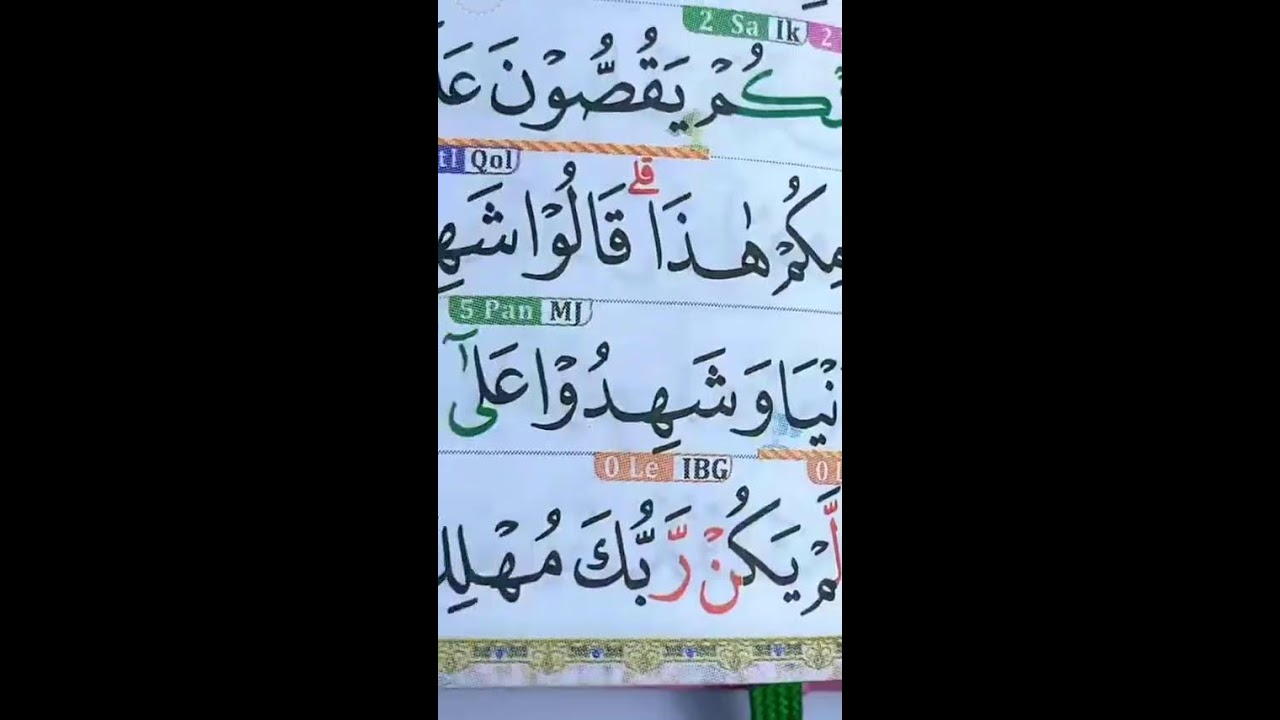 2 Sa Ik 2
نْكُمْ يَقُصُّوْنَ عَلَ
1 Qol
مِكُمْ هٰذَا ۗقَالُوْا شَهِ
5 Pan MJ
نْيَا وَشَهِدُوْا عَلٰٓى
0 Le IBG 0 L
لَّمْ يَكُنْ رَّبُّكَ مُهْلِكَ